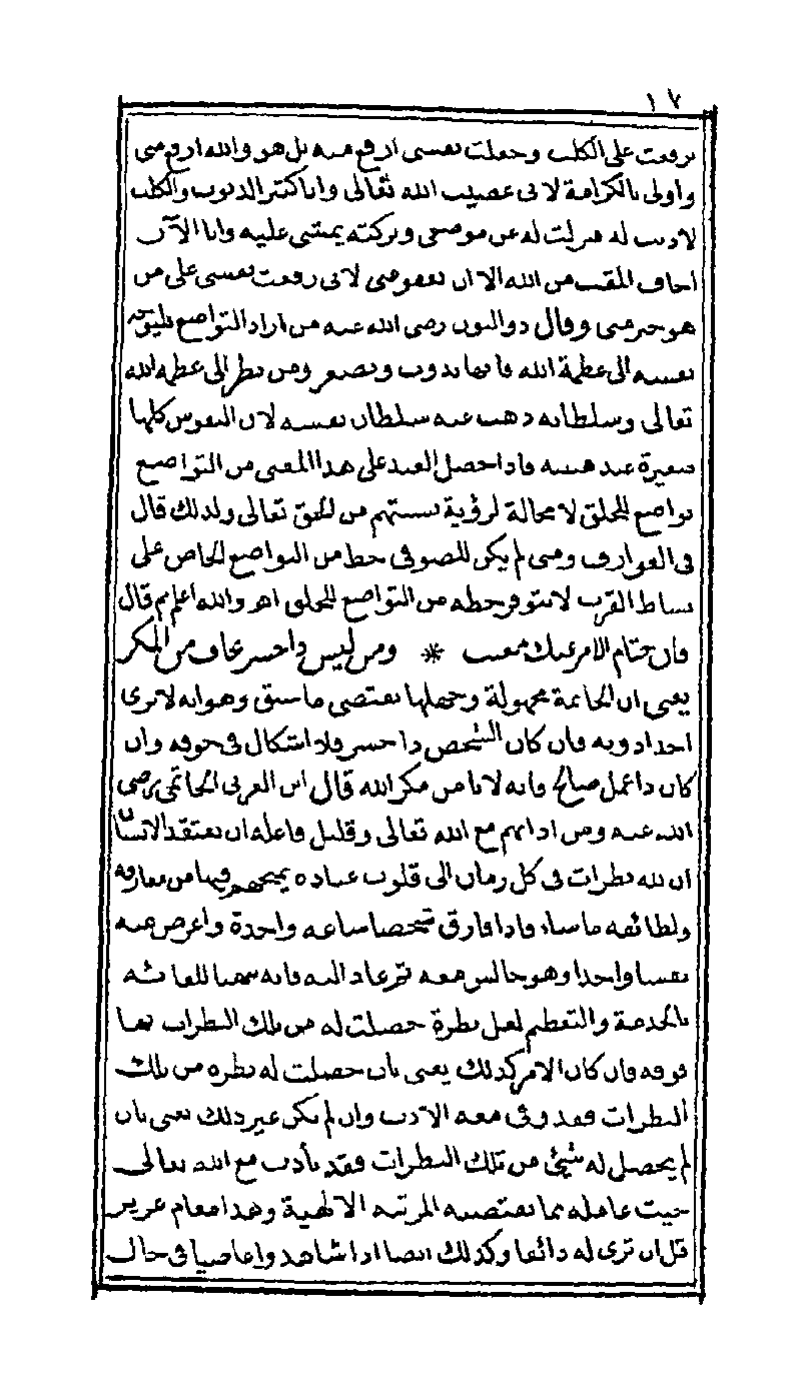 ١٧
ترفعت على الكلب وجعلت نفسى ارفع منه بل هو والله ارفع منى
واولى بالكرامة لانى عصيت الله تعالى وانا كثير الذنوب والكلب
لا ذنب له فنزلت له عن موضعى وتركته يمشى عليه وانا الآن
اخاف المقت من الله الا ان يعفو عنى لانى رفعت نفسى على من
هو خير منى وقال ذو النون رضى الله عنه من اراد التواضع فليوجه
نفسه الى عظمة الله فانها تذوب وتصغر ومن نظر الى عظمة الله
تعالى وسلطانه ذهب عنه سلطان نفسه لان النفوس كلها
صغيرة عند هيبته فاذا حصل العبد على هذا المعنى من التواضع
تواضع للخلق لا محالة لرؤية نسبتهم من الحق تعالى ولذلك قال
فى العوارف ومتى لم يكن للصوفى حظ من التواضع الخاص على
بساط القرب لا يتوفر حظه من التواضع للخلق اهـ والله اعلم ثم قال
فان ختام الامر عنك مغيب * ومن ليس ذا خسر يخاف من المكر
يعنى ان الخاتمة مجهولة وجهلها يقتضى ما سبق وهو انه لا ترى
احدا دونه فان كان الشخص ذا خسر فلا اشكال فى خوفه وان
كان ذا عمل صالح فانه لا يأمن مكر الله قال ابن العربى الحاتمى رضى
الله عنه ومن ادابهم مع الله تعالى وقليل فاعله ان يعتقد الانسان
ان لله نظرات فى كل زمان الى قلوب عباده يمنحهم فيها من معارفه
ولطائفه ما شاء فاذا فارق شخصا ساعة واحدة واعرض عنه
نفسا واحدا وهو جالس معه ثم عاد اليه فانه للقائه
بالخدمة والتعظيم لعل نظرة حصلت له من تلك النظرات فهنا
فوقه فان كان الامر كذلك يعنى بان حصلت له نظرة من تلك
النظرات فقد وفى معه الادب وان لم يكن غير ذلك يعنى بان
لم يحصل له شئ من تلك النظرات فقد تأدب مع الله تعالى
حيث عامله بما تقتضيه المرتبة الالهية وهذا مقام عزيز
قل ان ترى له ذائقا وكذلك ايضا اذا شاهدوا عاصيا فى حال